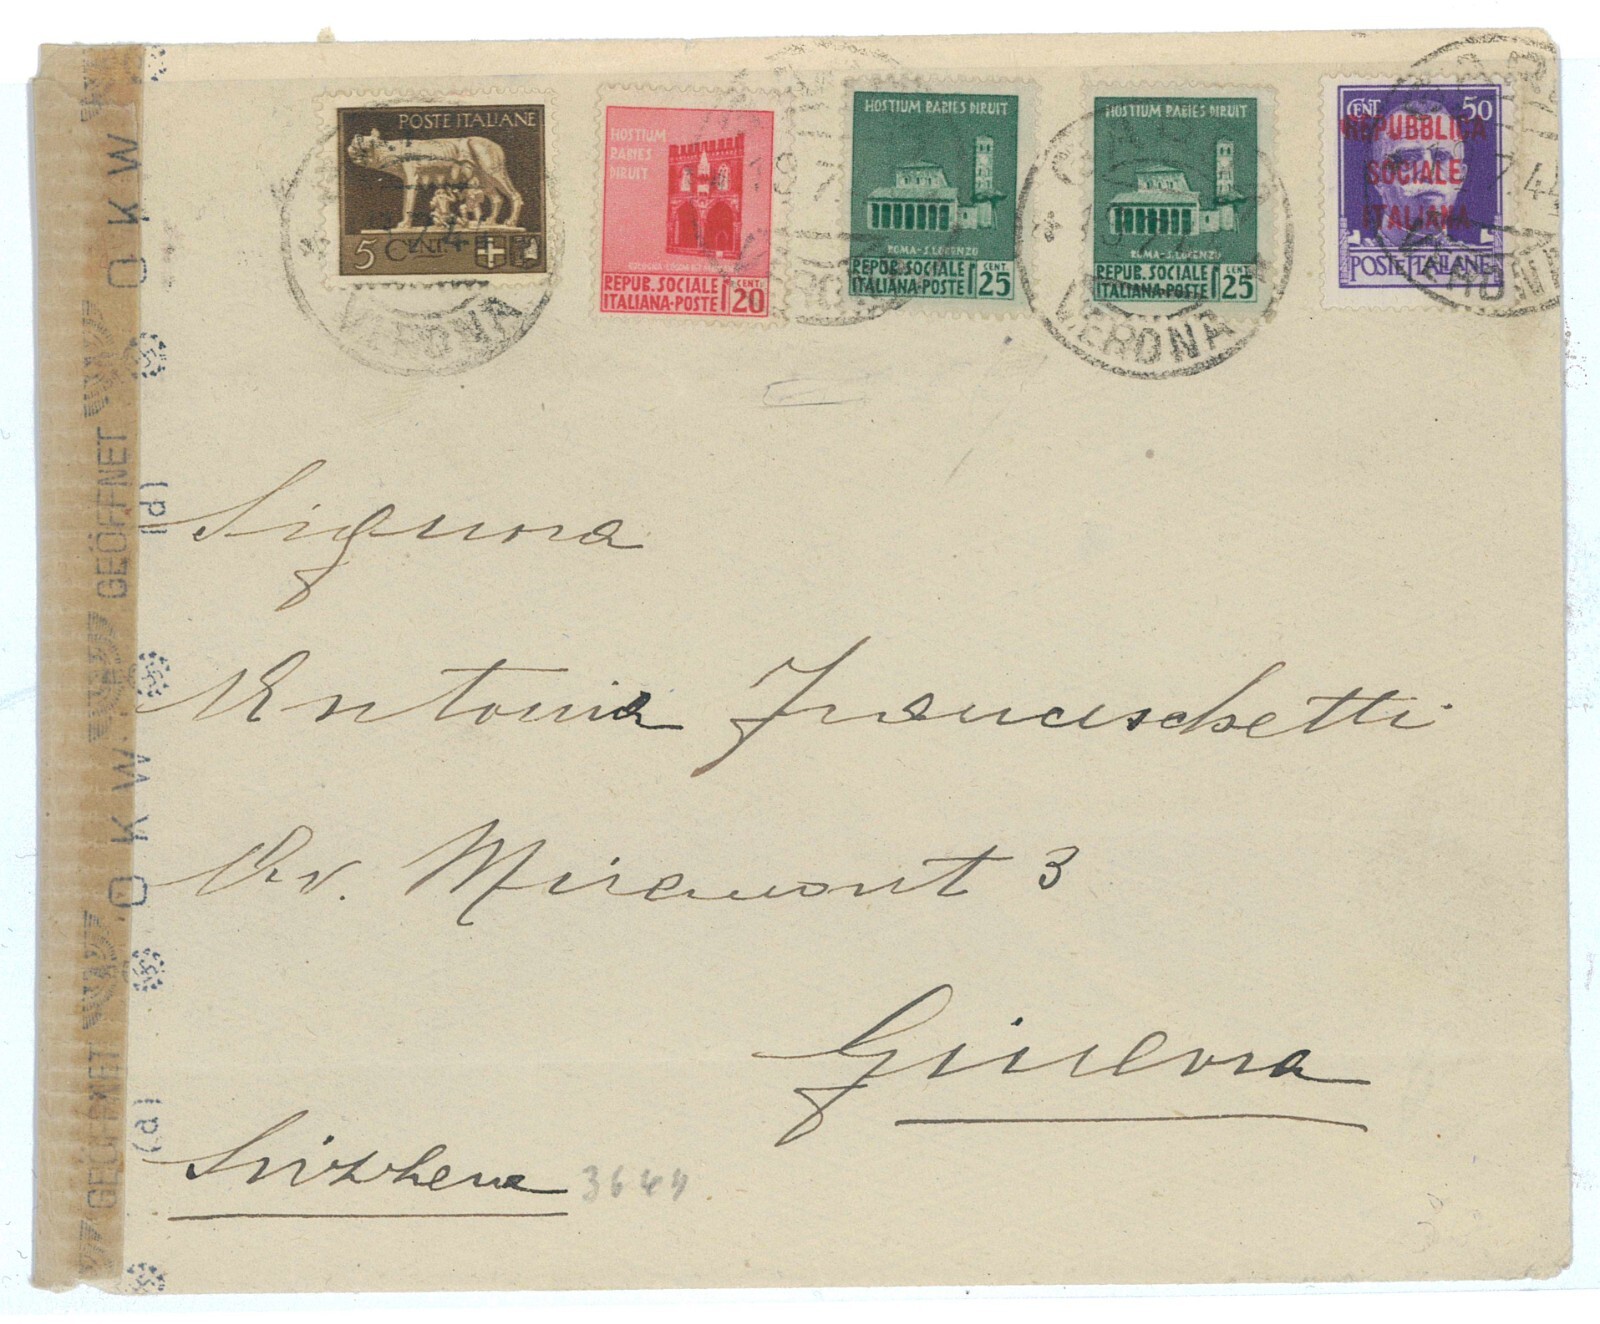 POSTE ITALIANE
5 CENT.
HOSTIUM
RABIES
DIRUIT
REPUB. SOCIALE
ITALIANA-POSTE
CENT.
20
HOSTIUM RABIES DIRUIT
ROMA - S. LORENZO
REPUB. SOCIALE
ITALIANA-POSTE
CENT.
25
HOSTIUM RABIES DIRUIT
ROMA - S. LORENZO
REPUB. SOCIALE
ITALIANA-POSTE
CENT.
25
CENT 50
REPUBBLICA
SOCIALE
ITALIANA
POSTE ITALIANE
VERONA
VERONA
Signora
Antonia Franceschetti
Av. Miramont 3
Ginevra
Svizzera 3644
OKW
GEÖFFNET
(d)
OKW
GEÖFFNET
(a)